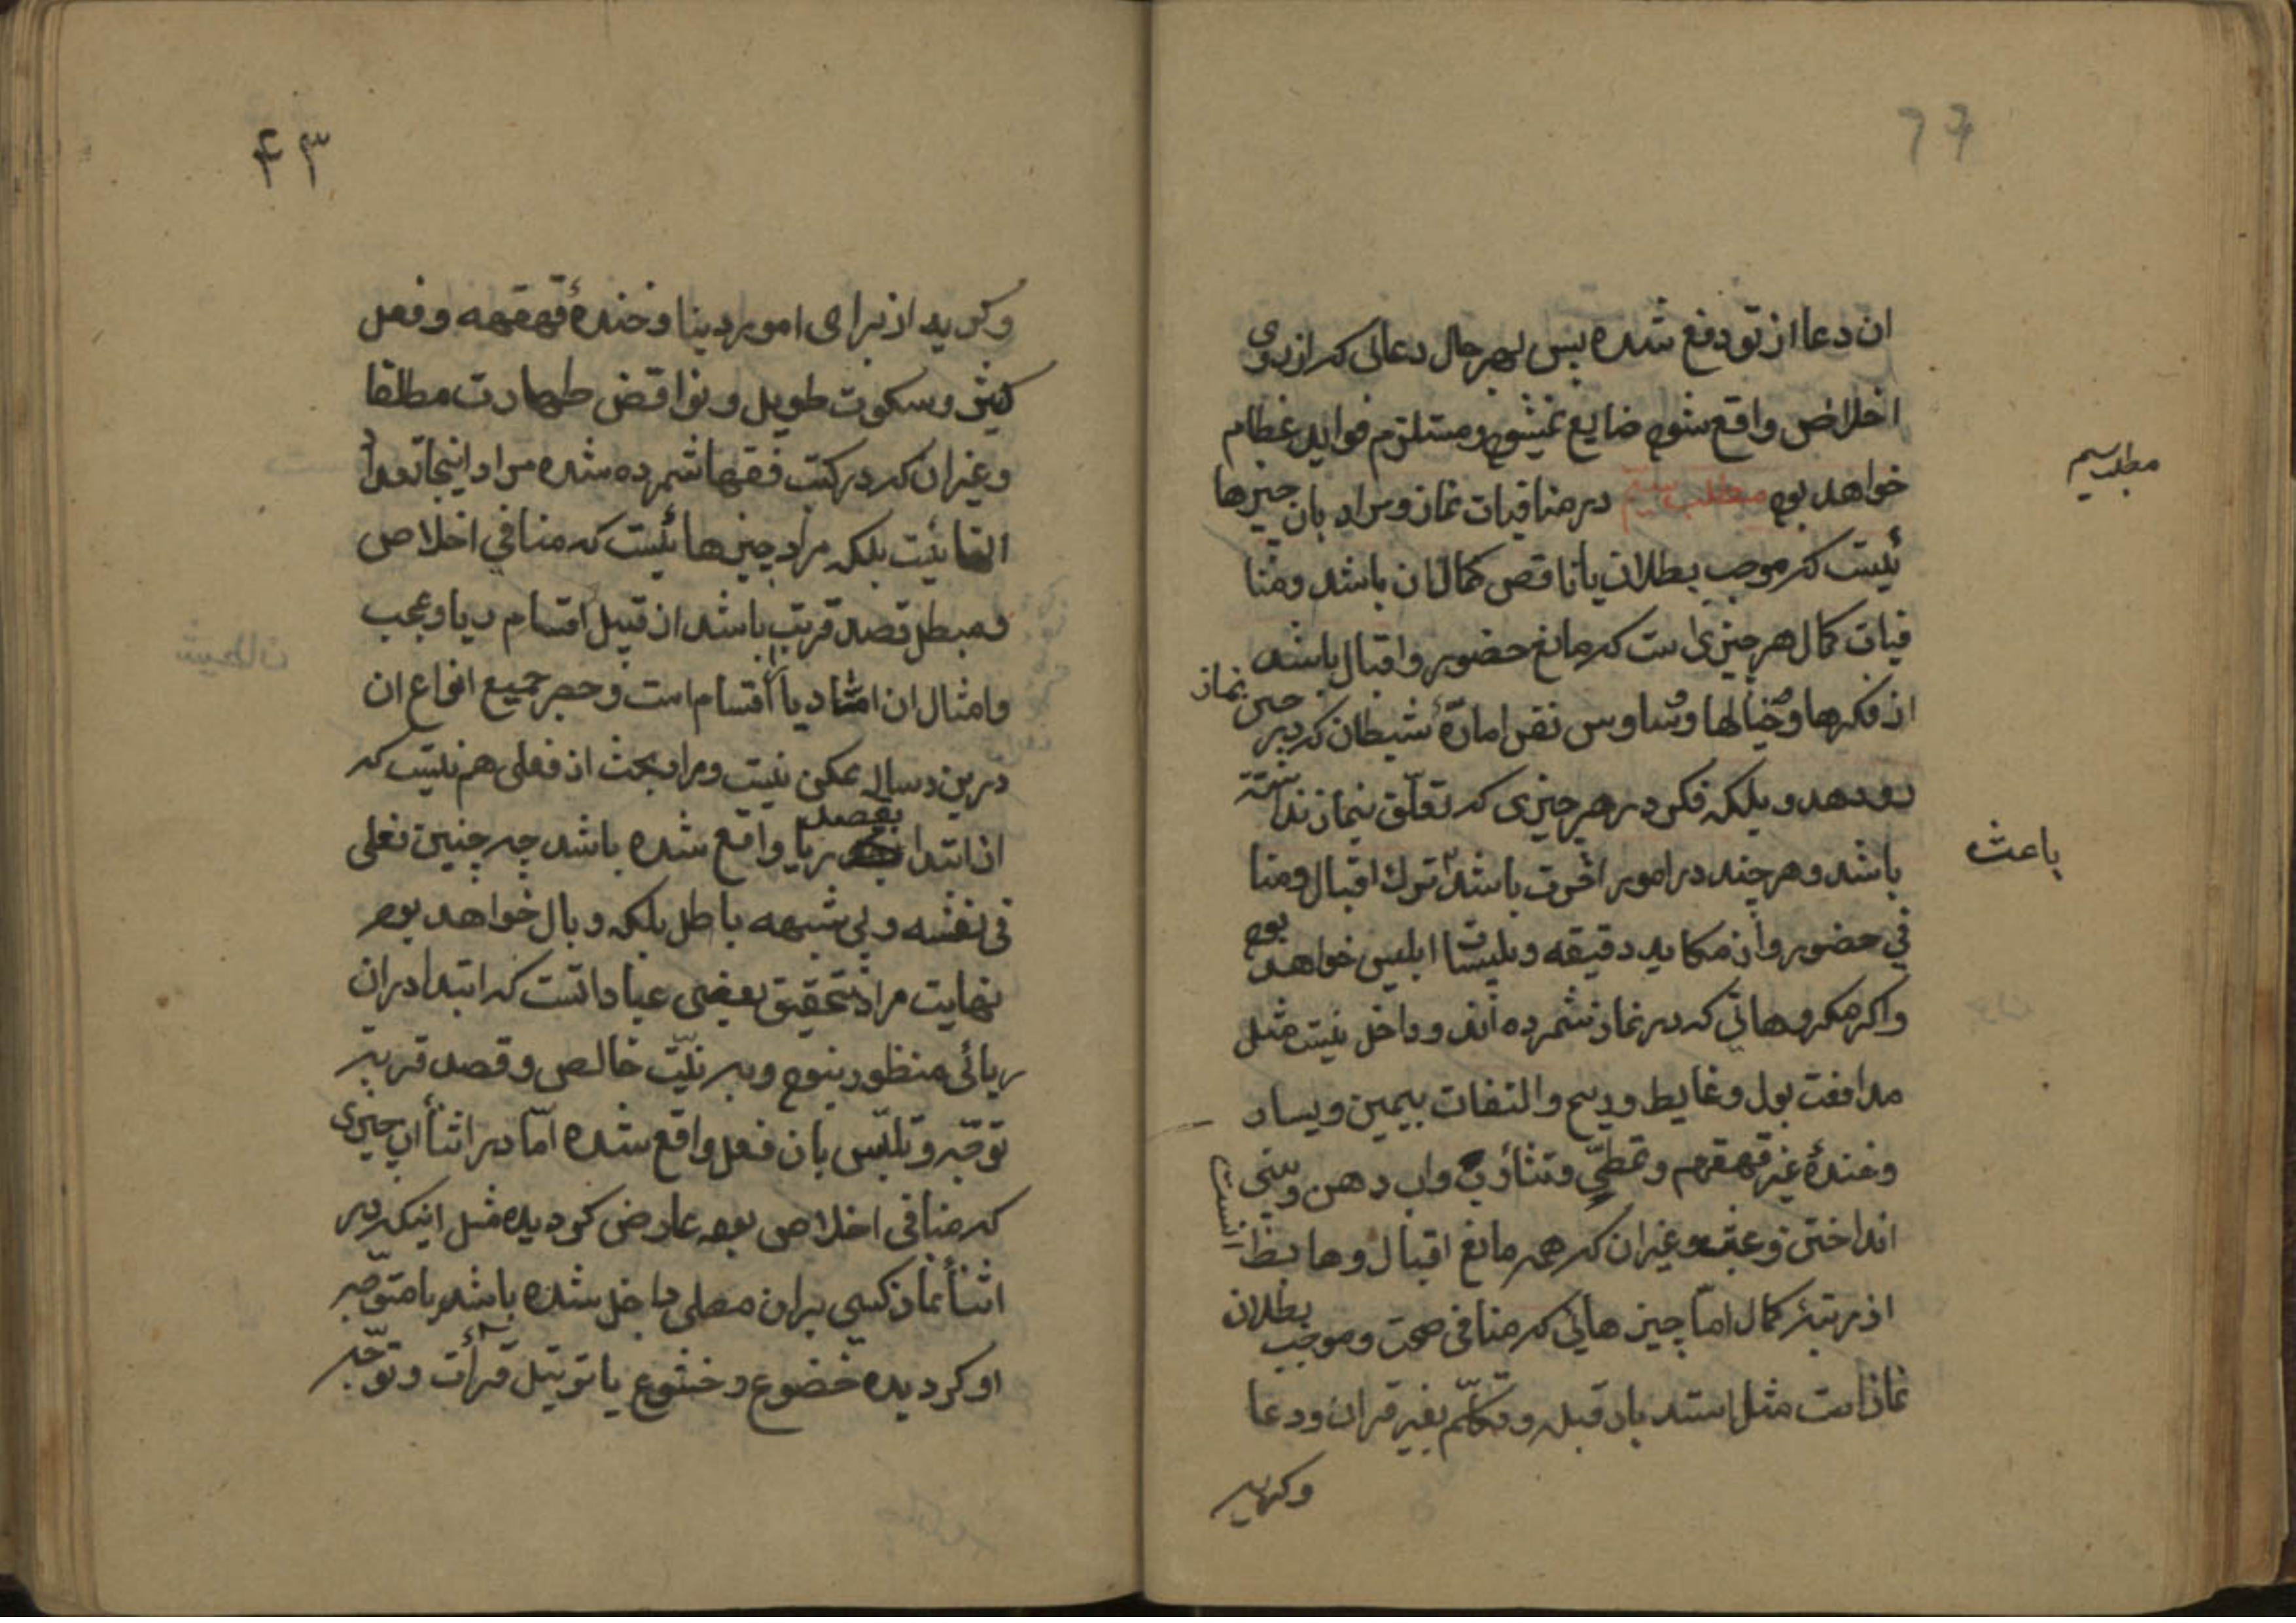 ان دعا از تو دفع شده پس بهر حال دعائی که از روی
اخلاص واقع شود ضایع نمیشود و مستلزم فواید عظام
خواهد بود مطلب سیم در منافیات نماز و مراد بان چیزها
ئیست که موجب بطلان یا ناقص کمال ان باشد و منا
فیات کمال هر چیزی است که مانع حضور و اقبال باشد
از فکرها و خیالها و وساوس نفس امارّهٔ شیطان که در حین نماز
رو دهد و بلکه فکر در هر چیزی که تعلّق بنماز نداشته
باشد و هر چند در امور اخرت باشد ترك اقبال و منا
فی حضور و از مکاید دقیقه و تلبیسات ابلیس خواهد بود
و اکر مکروهاتی که در نماز شمرده اند و داخل نیت مثل
مدافعت بول و غایط و ریح و التفات بیمین و یسار
و خندهٔ غیر قهقهه و تمطّی و تثاؤب و اب دهن و بینی
انداختن و عبث و غیر ان که همه مانع اقبال و هابط انست
از مرتبهٔ کمال امّا چیزهائی که منافی صحت و موجب بطلان
نماز است مثل استدبار قبله و تکلّم بغیر قران و دعا
و کریه
مطلب سیم
باعث
۴۳
و کریه از برای امور دنیا و خندهٔ قهقهه و فعل
کثیر و سکوت طویل و نواقض طهارت مطلقا
و غیر ان که در کتب فقها شمرده شده مراد اینجا تعداد
انها نیت بلکه مراد چیزهائیست که منافی اخلاص
و مبطل قصد قربت باشد از قبیل اقسام ریا و عجب
و امثال ان امّا ریا را اقسام است و حصر جمیع انواع ان
درین رساله ممکن نیت و مرا بحث از فعلی هم نیت که
از ابتدا بقصد ریا واقع شده باشد چه چنین فعلی
فی نفسه و بی شبهه باطل بلکه و بال خواهد بود
نهایت مراد تحقیق بعضی عباداتست که ابتدا در ان
ریائی منظور نبود و به نیّت خالص و قصد قربة
توجّه و تلبّس بان فعل واقع شده امّا در اثناء ان چیزی
که منافی اخلاص بود عارض کردیده مثل اینکه در
اثناء نماز کسی بران مصلی داخل شده باشد یا متوجّه
او کردیده خضوع و خشوع یا ترتیل قرأت و توجّه